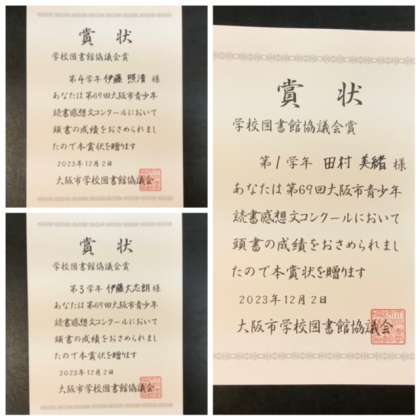 賞状
学校図書館協議会賞
第4学年 伊藤 照清 様
あなたは第69回大阪市青少年
読書感想文コンクールにおいて
頭書の成績をおさめられまし
たので本賞状を贈ります
2023年12月2日
大阪市学校図書館協議会
賞状
学校図書館協議会賞
第3学年 伊藤大志朗 様
あなたは第69回大阪市青少年
読書感想文コンクールにおいて
頭書の成績をおさめられまし
たので本賞状を贈ります
2023年12月2日
大阪市学校図書館協議会
賞状
学校図書館協議会賞
第1学年 田村 美緒 様
あなたは第69回大阪市青少年
読書感想文コンクールにおいて
頭書の成績をおさめられまし
たので本賞状を贈ります
2023年12月2日
大阪市学校図書館協議会